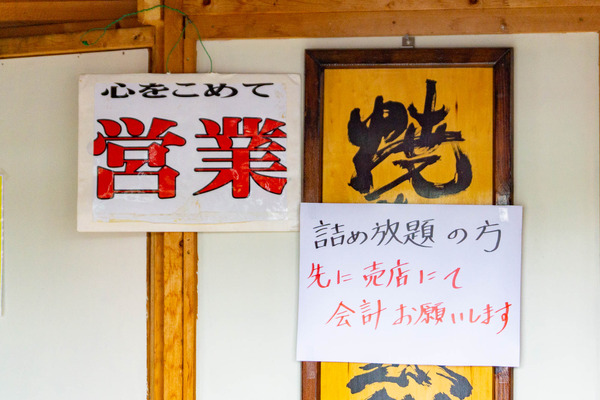 心をこめて
営業
焼
詰め放題の方
先に売店にて
会計お願いします